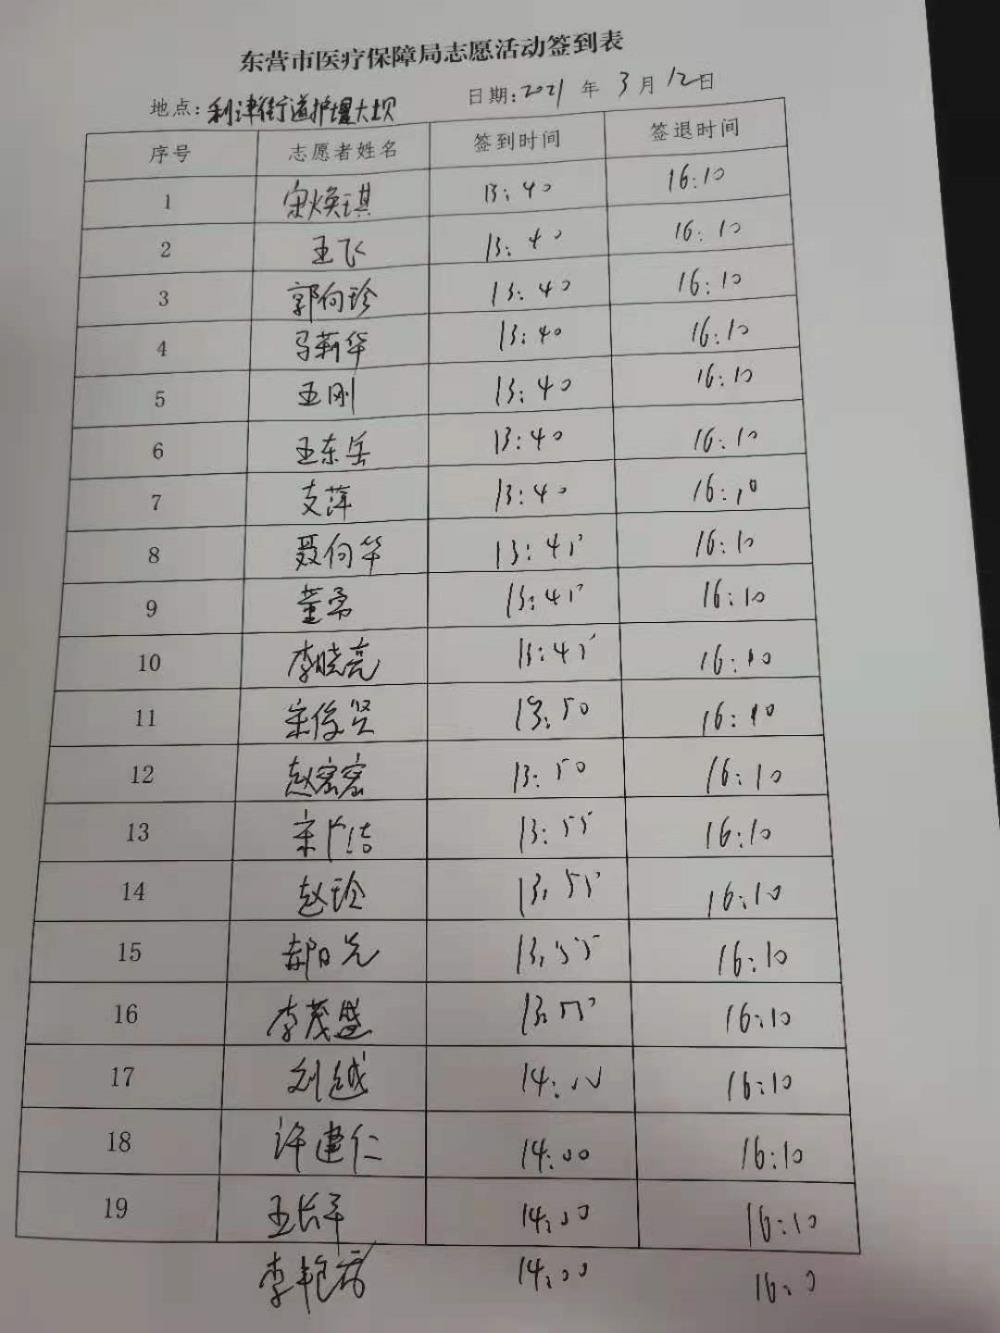 东营市医疗保障局志愿活动签到表
地点:利津街道护堤大坝 日期:2021年3月12日
序号 志愿者姓名 签到时间 签退时间
1 宋焕琪 13:40 16:10
2 王飞 13:40 16:10
3 郭向珍 13:40 16:10
4 马新华 13:40 16:10
5 王刚 13:40 16:10
6 王东岳 13:40 16:10
7 支萍 13:40 16:10
8 聂向华 13:45 16:10
9 董 13:45 16:10
10 李晓亮 13:45 16:10
11 宋俊贤 13:50 16:10
12 赵宏宏 13:50 16:10
13 宋 洁 13:55 16:10
14 赵珍 13:55 16:10
15 郝阳光 13:55 16:10
16 李茂盛 13:55 16:10
17 刘越 14:00 16:10
18 许建仁 14:00 16:10
19 王长军 14:00 16:10
李艳 14:00 16:0